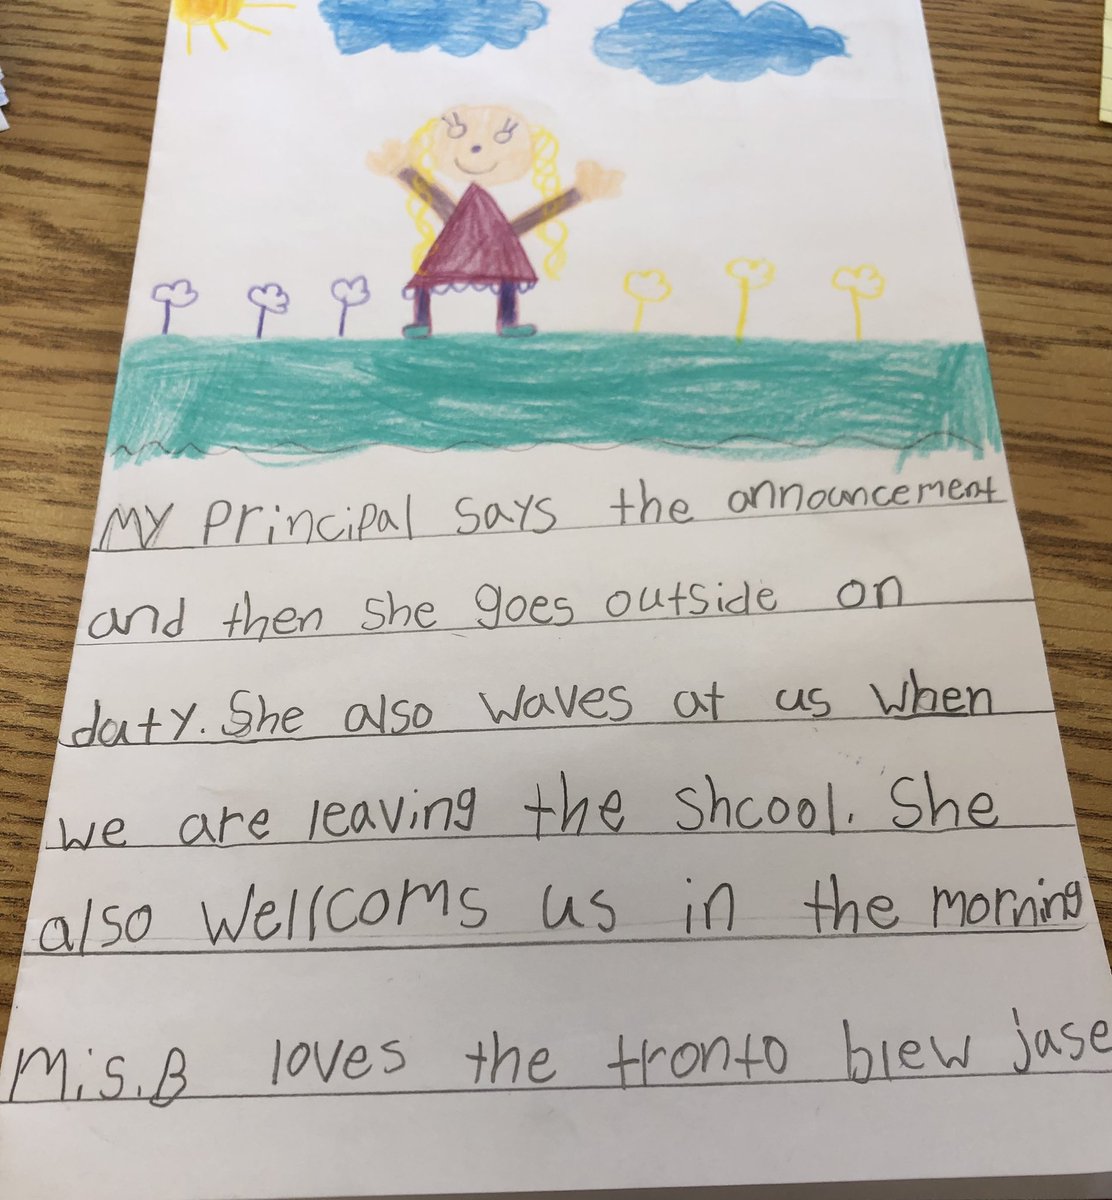 My Principal says the announcement
and then she goes outside on
daty. She also waves at us when
we are leaving the shcool. She
also wellcoms us in the morning
M.s.B loves the tronto blew jase